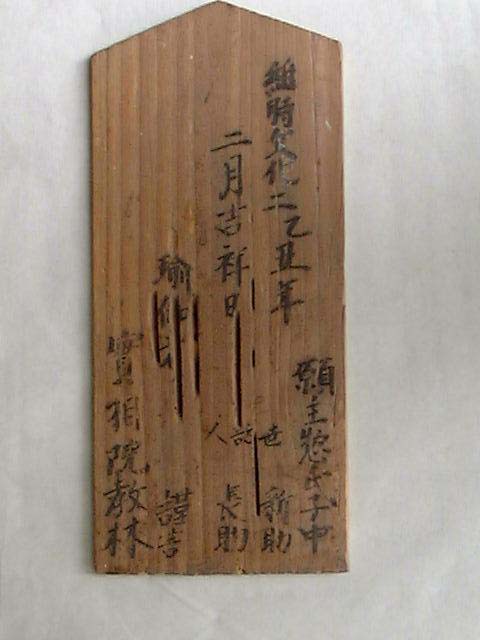 維時文化二乙丑年
二月吉祥日
願主惣氏子中
世話人
新助
長助
瑜伽
謹書
實相院教林